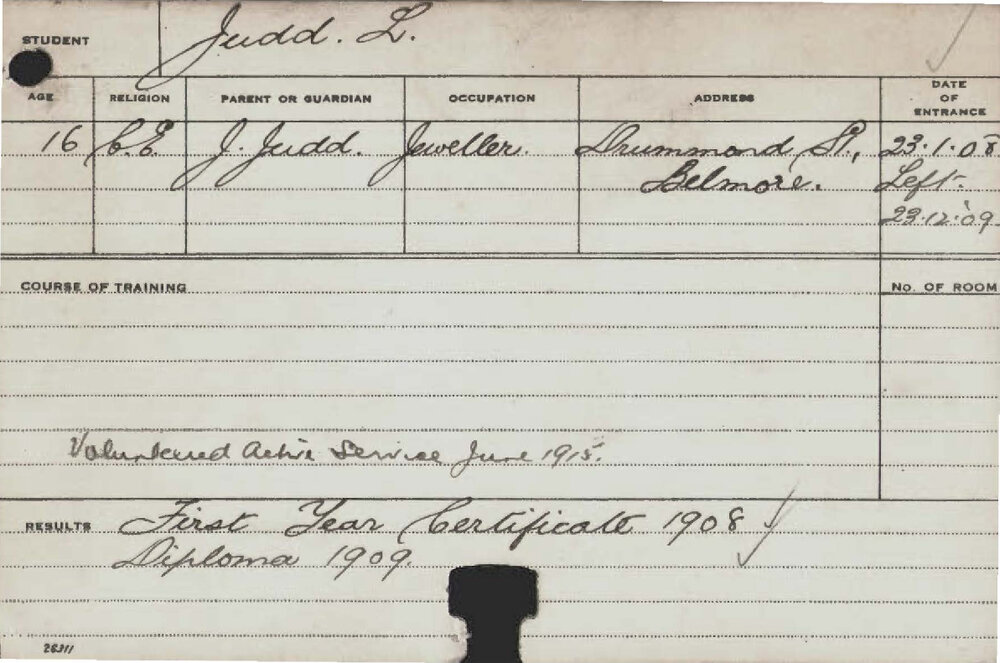 STUDENT Judd. L.
AGE RELIGION PARENT OR GUARDIAN OCCUPATION ADDRESS DATE OF ENTRANCE
16 C.E. J. Judd. Jeweller. Drummond St., 23.1.08
Belmore. Left.
23.12.09.
COURSE OF TRAINING No. OF ROOM
Volunteered Active Service June 1915.
RESULTS First Year Certificate 1908
Diploma 1909.